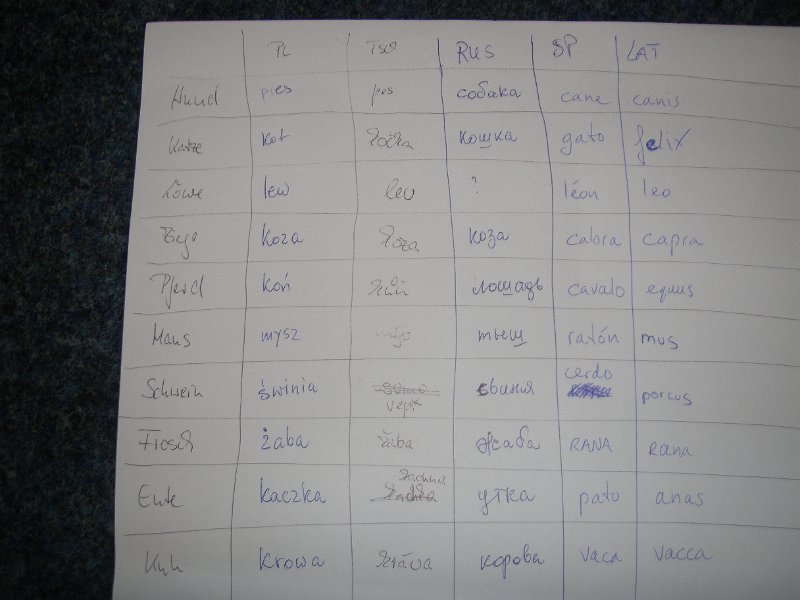 PL TSCH RUS SP LAT
Hund pies pes собака cane canis
Katze kot kočka кошка gato felix
Löwe lew lev ? léon leo
Ziege koza koza коза cabra capra
Pferd koń kůň лошадь cavalo equus
Maus mysz myš мыш ratón mus
Schwein świnia vepř свиния cerdo porcus
Frosch żaba žaba жаба RANA rana
Ente kaczka kachna утка pato anas
Kuh krowa kráva корова vaca vacca